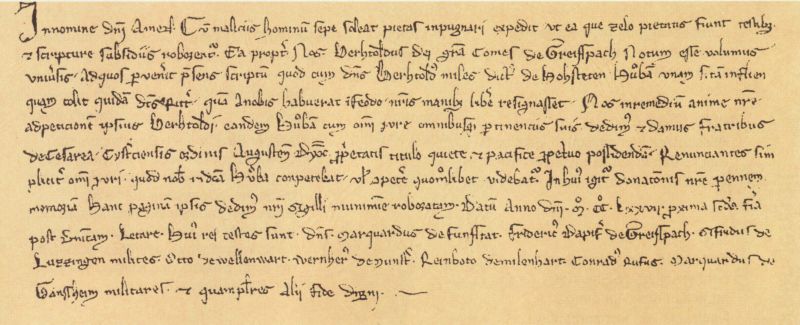 In nomine dni Amen. Cu maliciis hominum sepe soleat pietas inpugnari expedit ut ea que zelo pietatis fiunt testibz
& scripture subsidiis roborent. Ea propt Nos Berhtoldus dei gra Comes de Greifspach Notum esse volumus
universis. Ad quos pvenit psens scriptu quod cum dns Berhtold miles dict de Hohsteten Hubam unam sitam in
quam colit quidam dts qua Anobis habuerat ifeodo nris manibz libe resignasset. Nos inremedium anime nre
adpeticionem ipsius Berhtoldi eandem Hubam cum omi iure omnibusq ptinenciis suis dedim & damus fratribus
de Cesarea Cystciensis ordinis Augusten dyoc ppetatis titulo quiete & pacifice ppetuo possidendam. Renunciantes sim
plicit omi iuri quod nob idcam Huba conpetebat vl opete quomlibet videbat. In hui igit donationis nre pennem
memoriam Hanc paginam ipsis dedim nri sigilli munimine roboratam. Datu Anno dni M CC Lxxvii proxima scda fia
post dnicam Letare. Hui rei testes sunt dns Marquardus de funfstat. frideric Dapif de Greifspach. Sifridus de
Luzzingen milites. Otto de wellenwart. wernher de munst. Reinboto demilenhart. Conrad Rufus. Marquardus de
Gansheim militares. & quamplres alii fide digni.